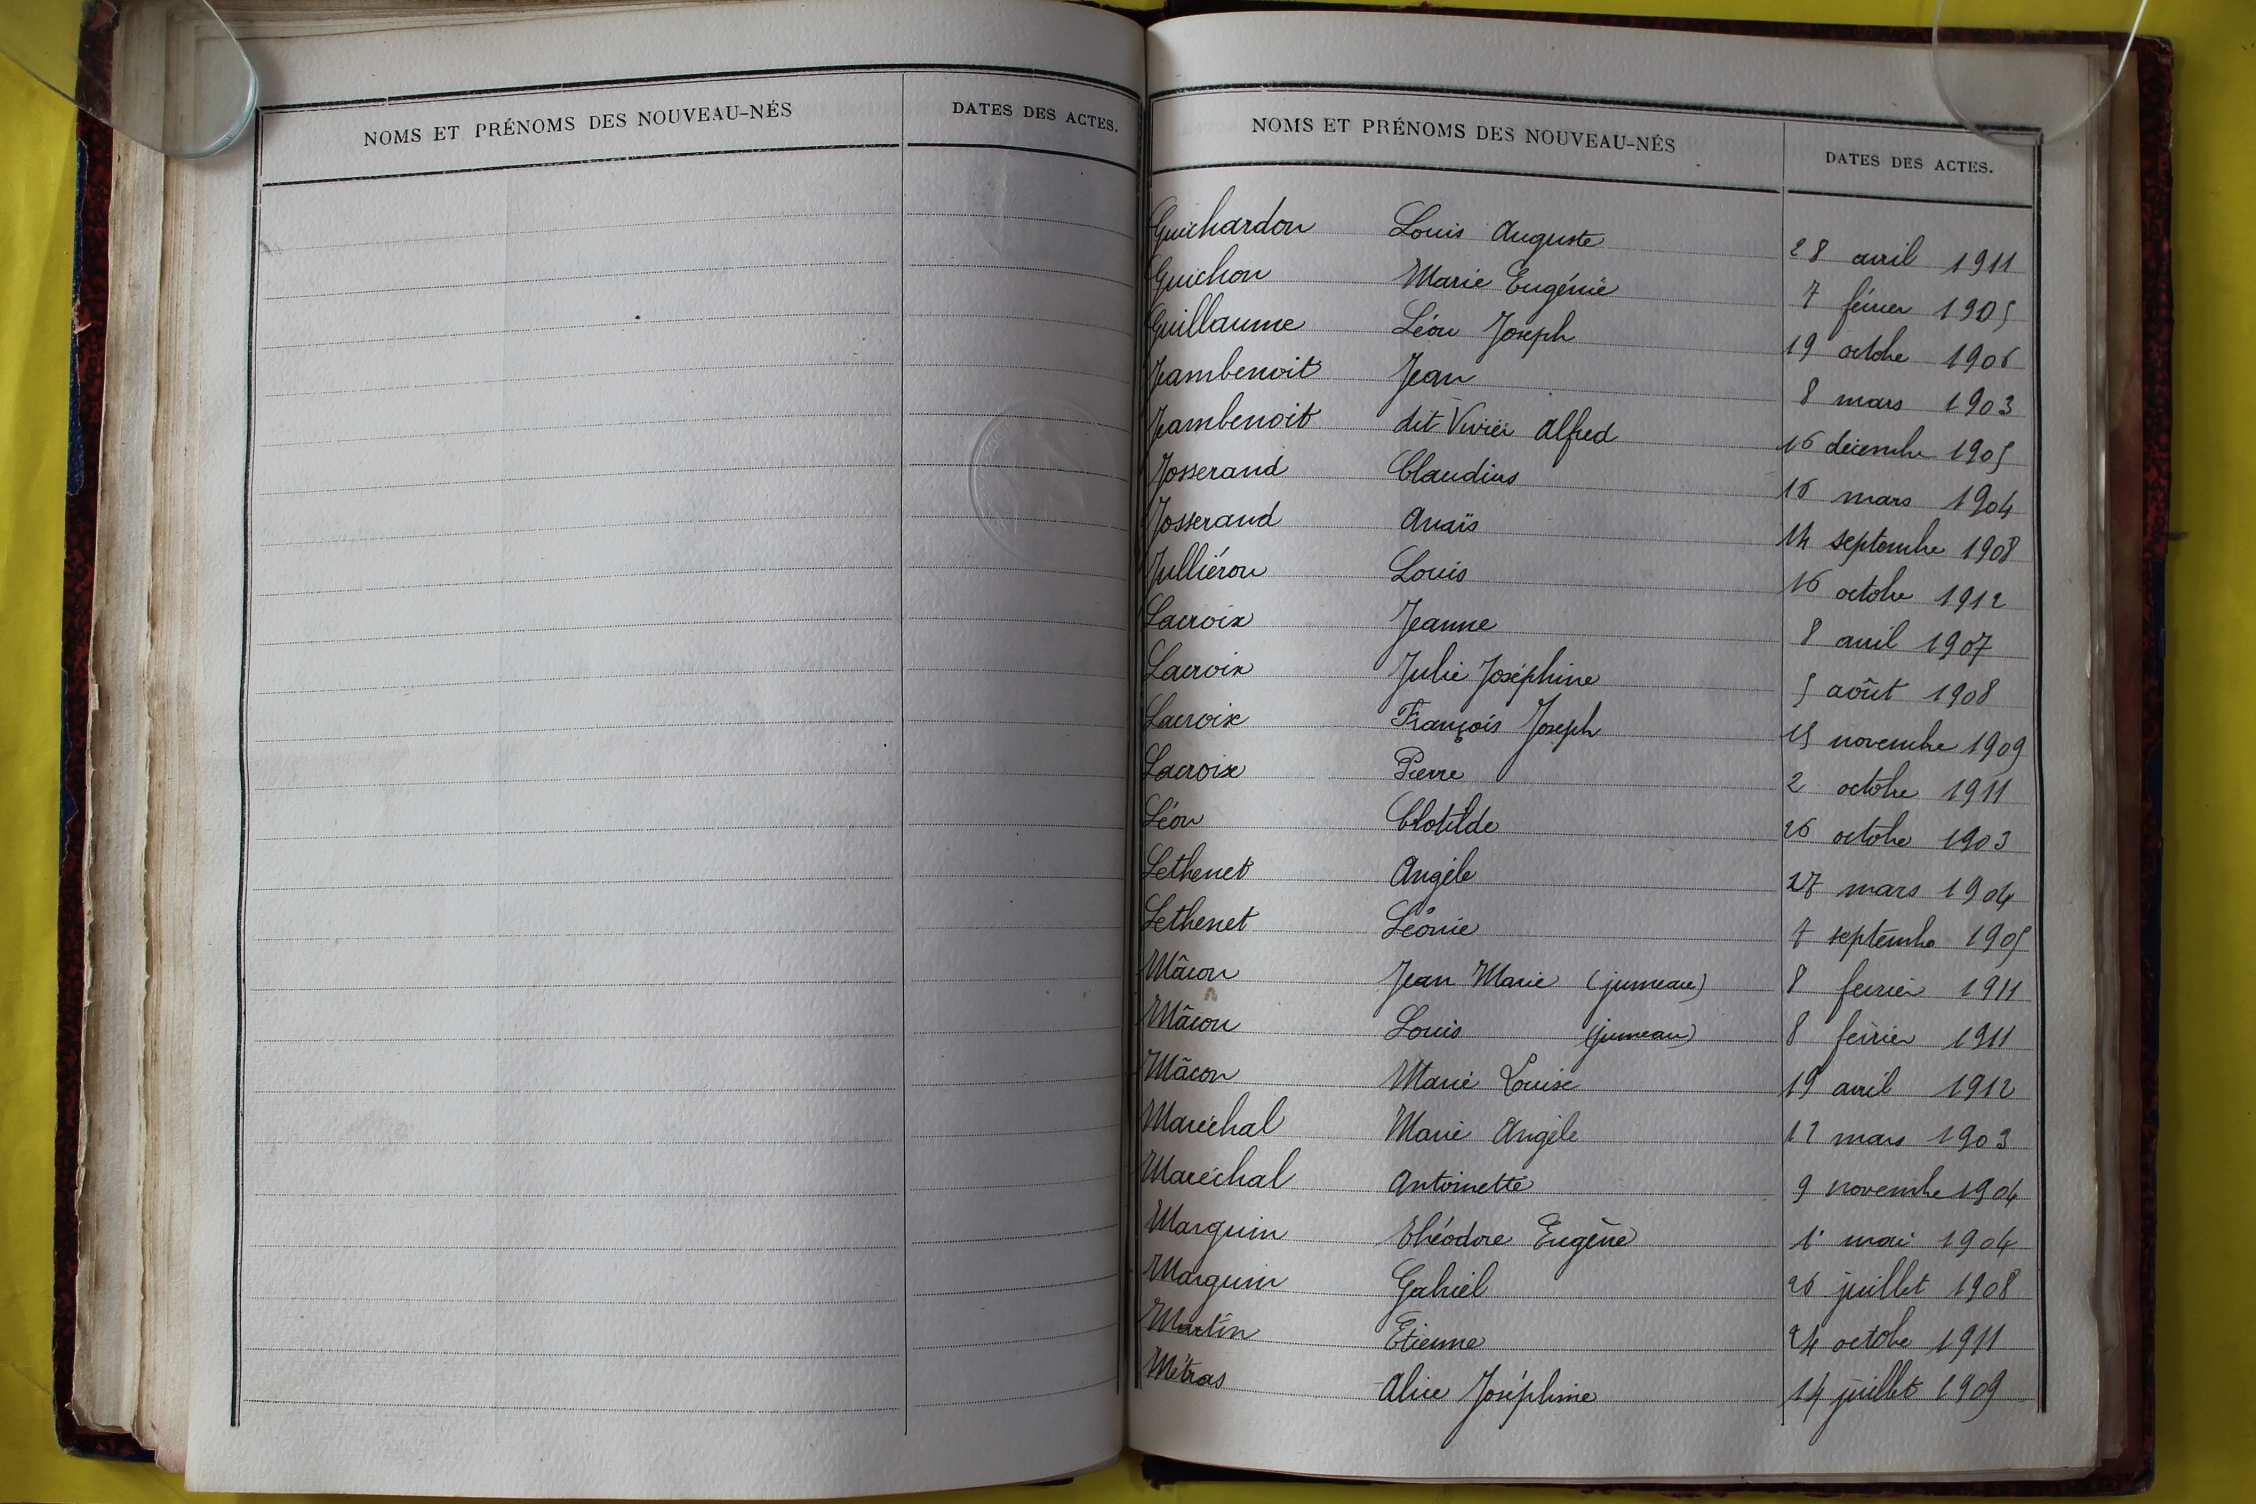 NOMS ET PRÉNOMS DES NOUVEAU-NÉS DATES DES ACTES.
NOMS ET PRÉNOMS DES NOUVEAU-NÉS DATES DES ACTES.
Guichardon Louis Auguste 28 avril 1911
Guichon Marie Eugénie 7 février 1905
Guillaume Léon Joseph 19 octobre 1906
Jambenoit Jean 8 mars 1903
Jambenoit dit Vivier Alfred 16 décembre 1905
Josserand Claudius 16 mars 1904
Josserand Anaïs 14 septembre 1908
Julliéron Louis 16 octobre 1912
Lacroix Jeanne 8 avril 1907
Lacroix Julie Joséphine 5 août 1908
Lacroix François Joseph 15 novembre 1909
Lacroix Pierre 2 octobre 1911
Léon Clotilde 26 octobre 1903
Lethenet Angèle 27 mars 1904
Lethenet Léonie 7 septembre 1905
Mâcon Jean Marie (jumeau) 8 février 1911
Mâcon Louis (jumeau) 8 février 1911
Mâcon Marie Louise 19 avril 1912
Maréchal Marie Angèle mars 1903
Maréchal Antoinette 9 novembre 1904
Marguin Théodore Eugène 1er mai 1904
Marguin Gabriel 26 juillet 1908
Martin Etienne 24 octobre 1911
Métras Alice Joséphine 14 juillet 1909